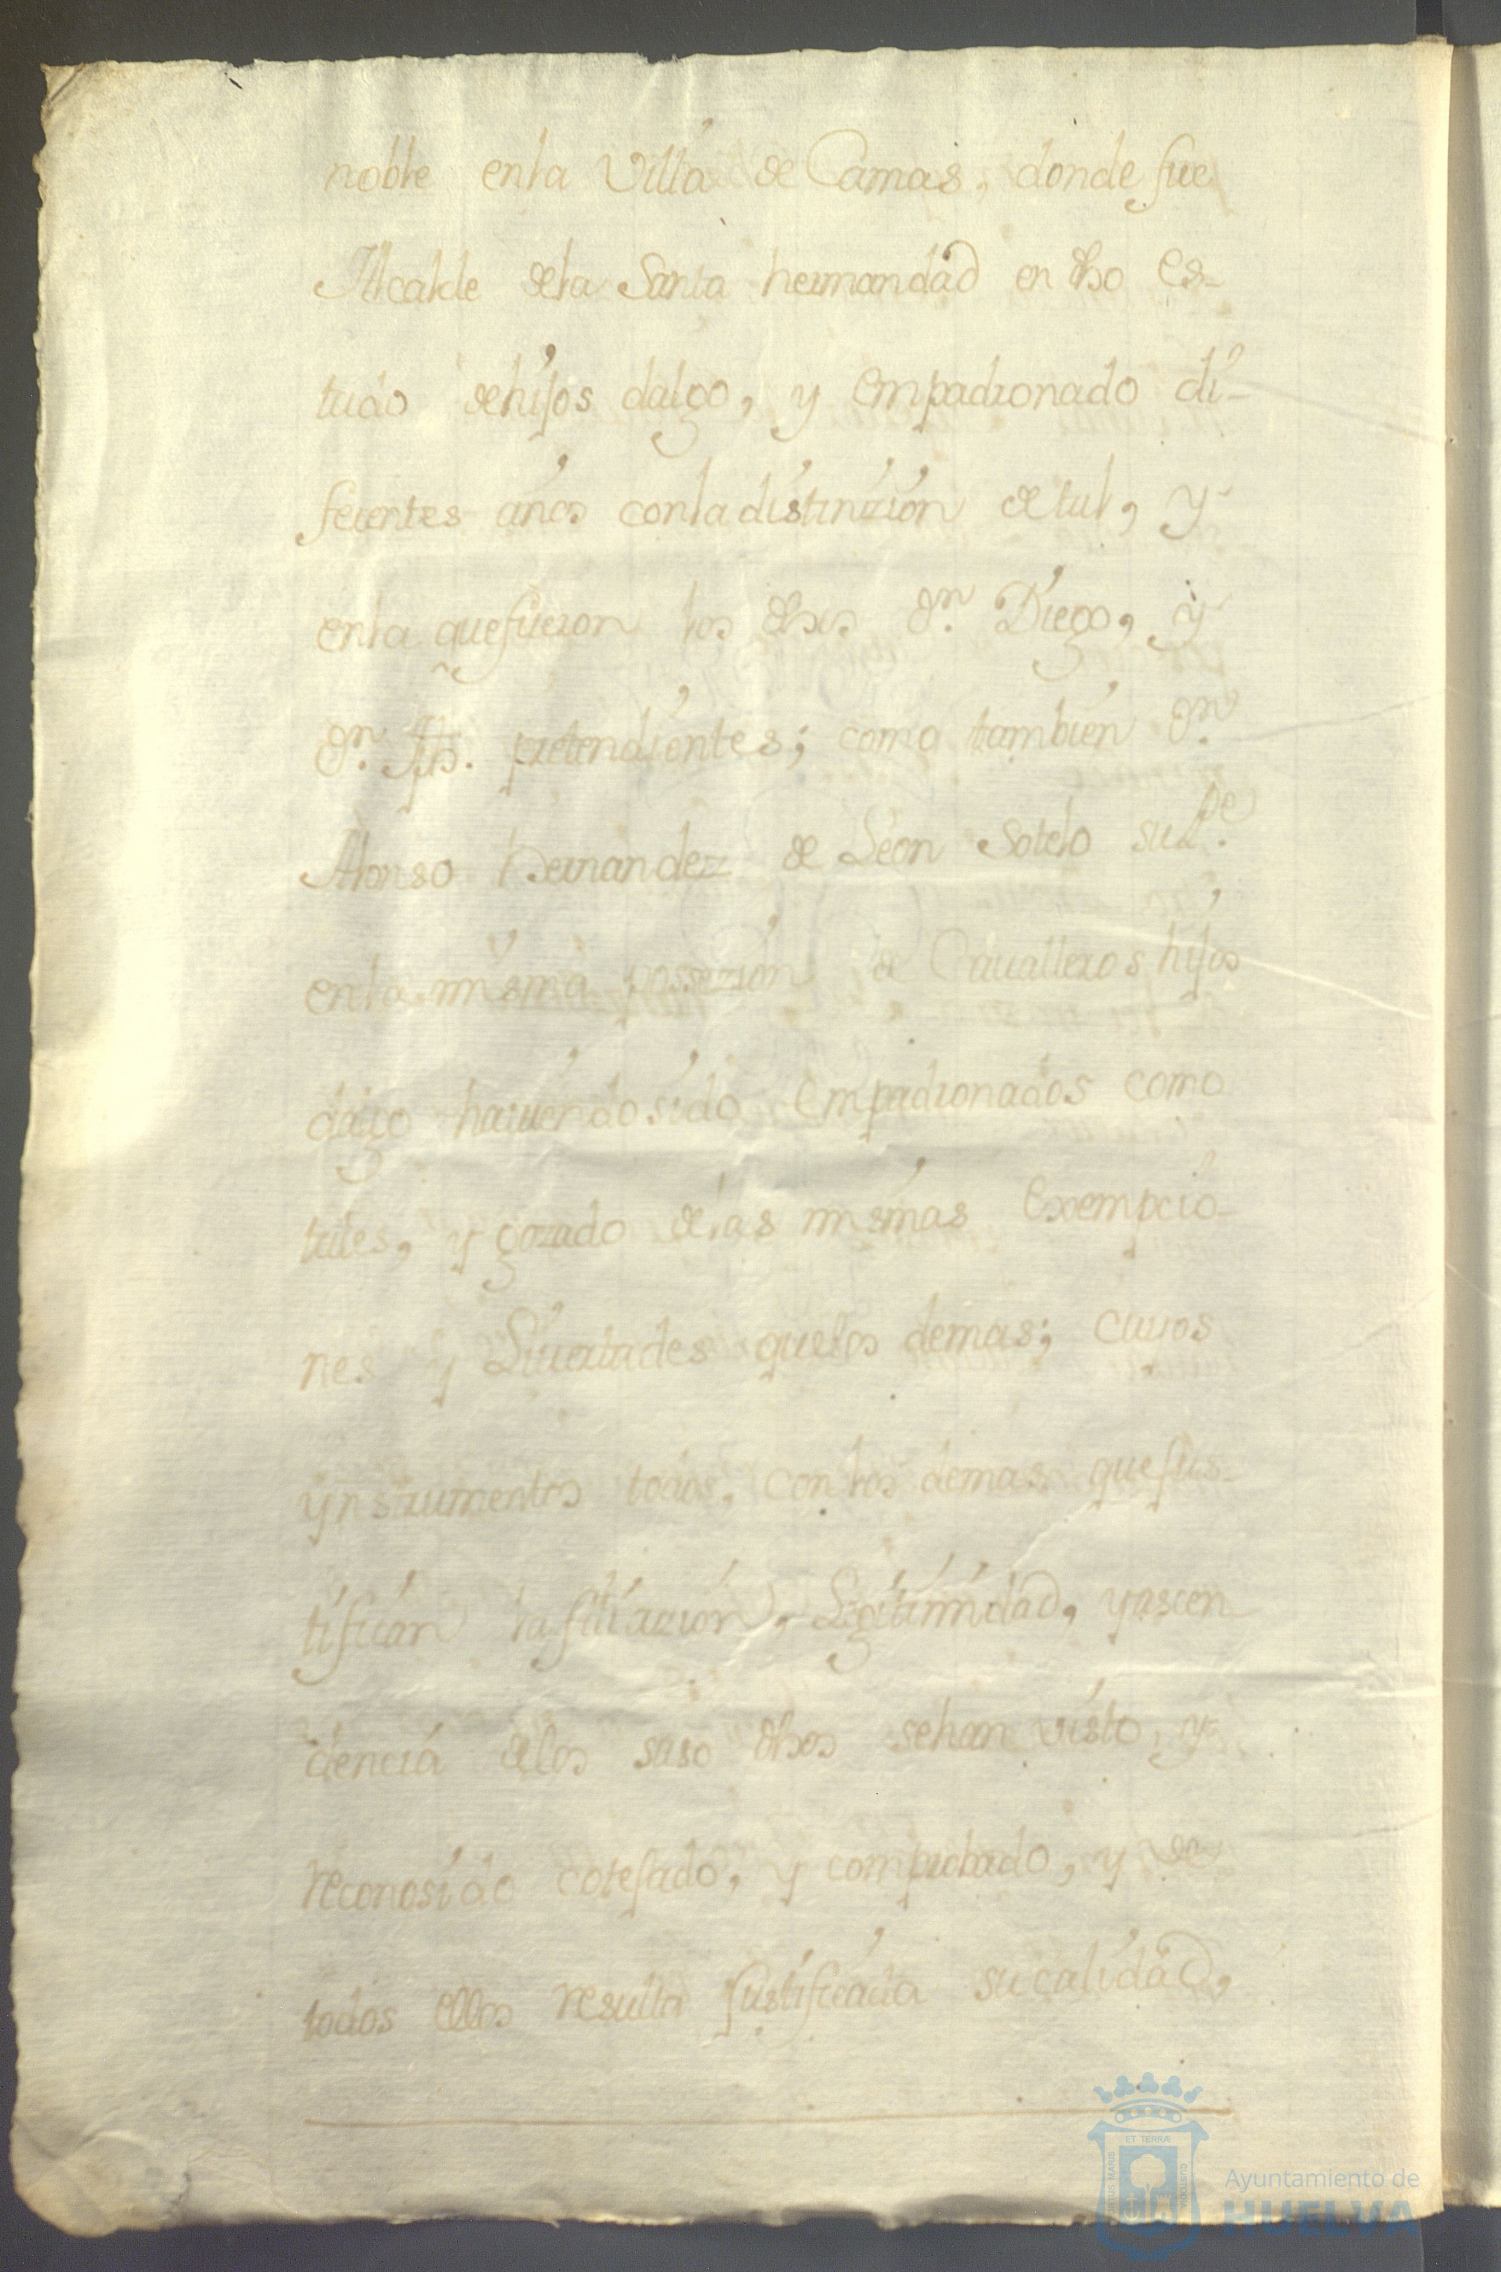 noble enla Villa de Camas, donde fue
Alcalde dela Santa hermandad en dho es-
tado dehijos dalgo, y empadronado di-
ferentes años conla distinzion de tal, y
enla quefueron los dhos Dn. Diego, y
Dn. pretendientes; como tambien Dn.
Alonso Hernandez de Leon Sotelo su Pe.
enla misma possezion de Cavalleros hijos
dalgo haviendo sido empadronados como
tales, y gozado delas mismas exempcio-
nes y Livertades quelos demas; cuyos
ynstrumentos todos, conlos demas quejus-
tifican la filiazion, Legitimidad, y ascen
dencia delos suso dhos sehan visto, y
reconosido cotejado, y comprobado, y de
todos ellos resulta justificada su calidad,
ET TERRÆ
Ayuntamiento de
HUELVA